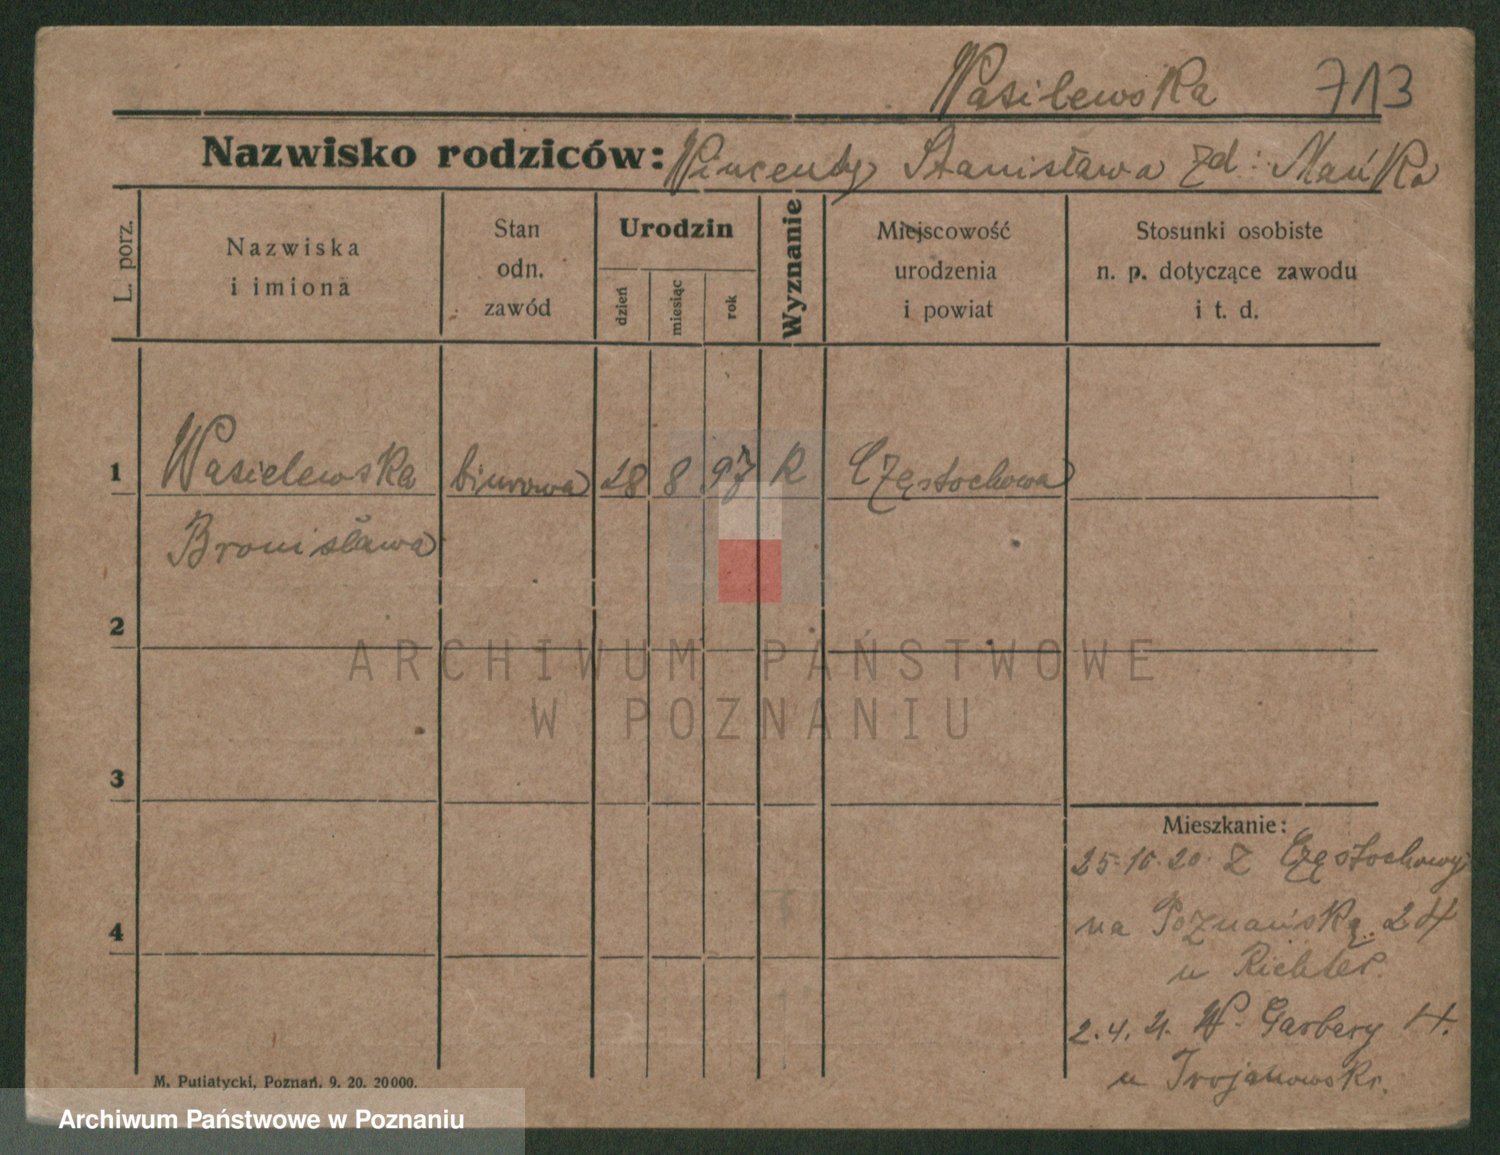 Wasilewska 713
Nazwisko rodziców: Wincenty Stanisława zd: Mańka
L. porz.
Nazwiska
i imiona
Stan
odn.
zawód
Urodzin
dzień
miesiąc
rok
Wyznanie
Miejscowość
urodzenia
i powiat
Stosunki osobiste
n. p. dotyczące zawodu
i t. d.
1 Wasielewska biurowa 28 8 97 R Częstochowa
Bronisława
2
3
4
ARCHIWUM PAŃSTWOWE
W POZNANIU
Mieszkanie:
25.10.20. z Częstochowy
na Poznańską 24
u Richter.
2.4.21. W. Garbary 14.
u Trojanowskr.
M. Putiatycki, Poznań. 9. 20. 20000.
Archiwum Państwowe w Poznaniu